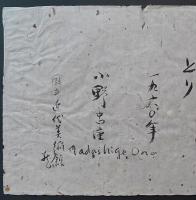 とり
一九六〇年
小野忠重
Tadashige Ono
国立近代美術館